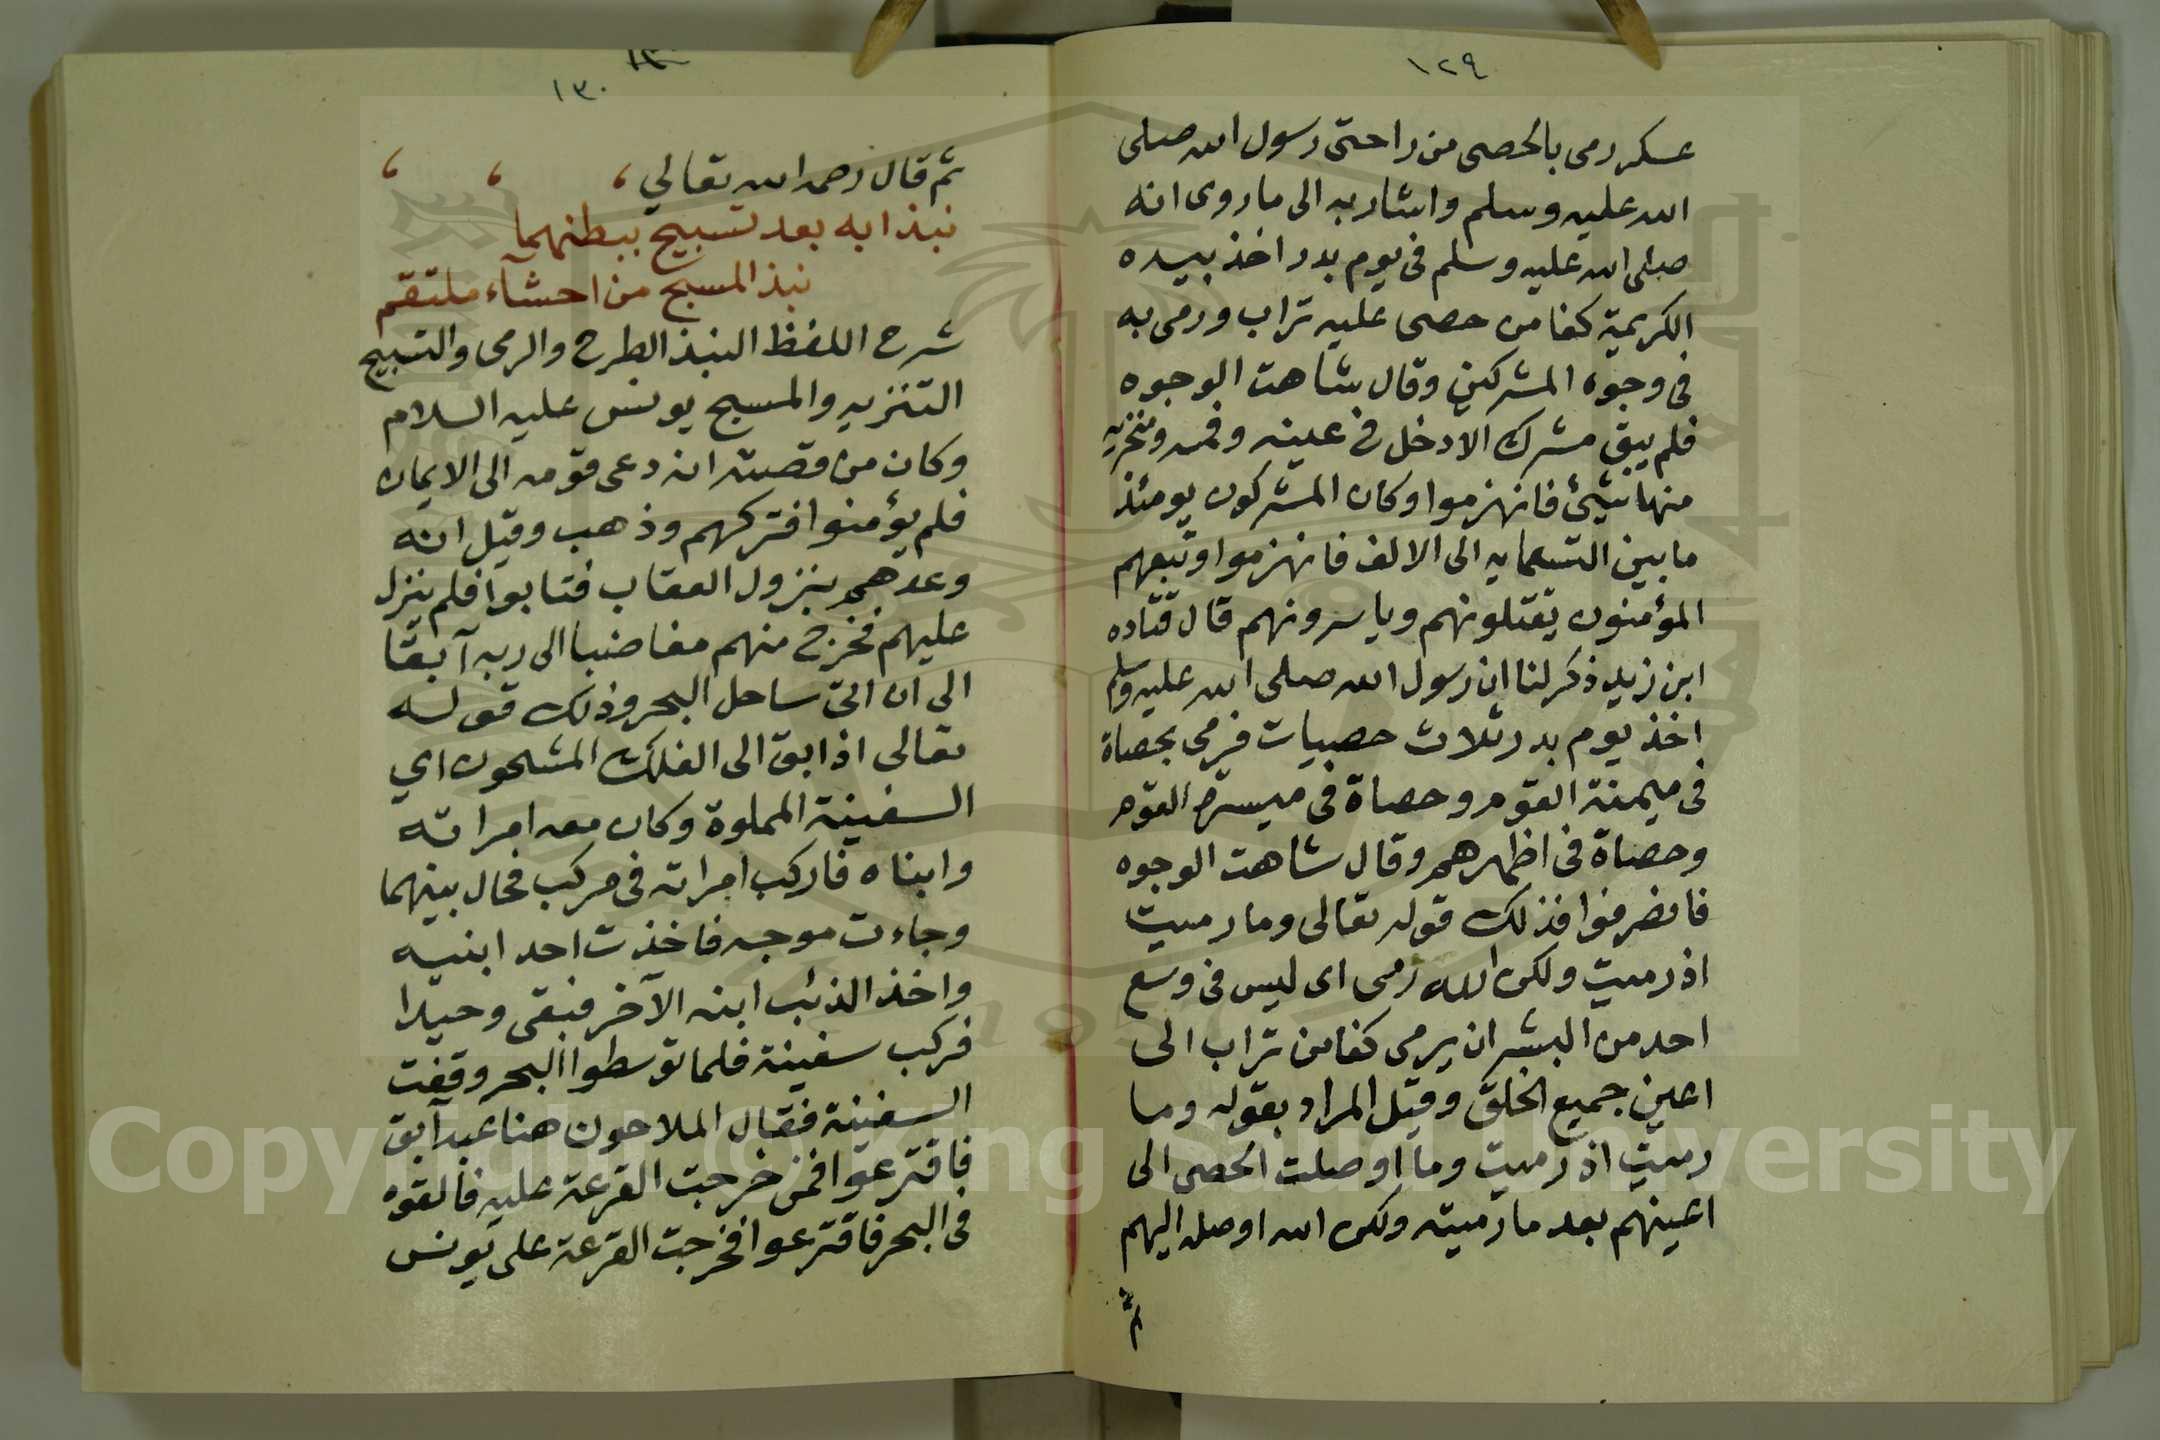 ١٢٩
عسكر رمى بالحصى من راحتى رسول الله صلى
الله عليه وسلم واشار به الى ما روى انه
صلى الله عليه وسلم فى يوم بدر اخذ بيده
الكريمة كفا من حصى عليه تراب ورمى به
فى وجوه المشركين وقال شاهت الوجوه
فلم يبق مشرك الا دخل فى عينه وفمه ومنخريه
منها شيئ فانهزموا وكان المشركون يومئذ
ما بين التسعمايه الى الالف فانهزموا وتبعهم
المؤمنون يقتلونهم وياسرونهم قال قتاده
ابن زيد ذكر لنا ان رسول الله صلى الله عليه وسلم
اخذ يوم بدر ثلاث حصيات فرمى بحصاة
فى ميمنة القوم وحصاة فى ميسرة القوم
وحصاة فى اظهرهم وقال شاهت الوجوه
فانصرفوا فذلك قوله تعالى وما رميت
اذ رميت ولكن الله رمى اى ليس فى وسع
احد من البشر ان يرمى كفا من تراب الى
اعين جميع الخلق وقيل المراد بقوله وما
رميت اذ رميت وما اوصلت الحصى الى
اعينهم بعد ما رميته ولكن الله اوصله اليهم
ثم
١٣٠
١٣٠
ثم قال رحمه الله تعالي ،
نبذا به بعد تسبيح ببطنهما
نبذ المسبح من احشآء ملتقم
شرح اللفظ النبذ الطرح والرمى والتسبيح
التنزيه والمسبح يونس عليه السلام
وكان من قصته انه دعى قومه الى الايمان
فلم يؤمنوا فتركهم وذهب وقيل انه
وعدهم بنزول العقاب فتابوا فلم ينزل
عليهم فخرج منهم مغاضبا الى ربه آبقا
الى ان اتى ساحل البحر وذلك قوله
تعالى اذ ابق الى الفلك المشحون اي
السفينة المملوة وكان معه امراته
وابناه فاركب امراته فى مركب فحال بينهما
وجاءت موجه فاخذت احد ابنيه
واخذ الذئب ابنه الآخر فبقى وحيدا
فركب سفينة فلما توسطوا البحر وقفت
السفينة فقال الملاحون هنا عبد آبق
فاقترعوا فمن خرجت القرعة عليه فالقوه
فى البحر فاقترعوا فخرجت القرعة على يونس
Copyright © King Saud University